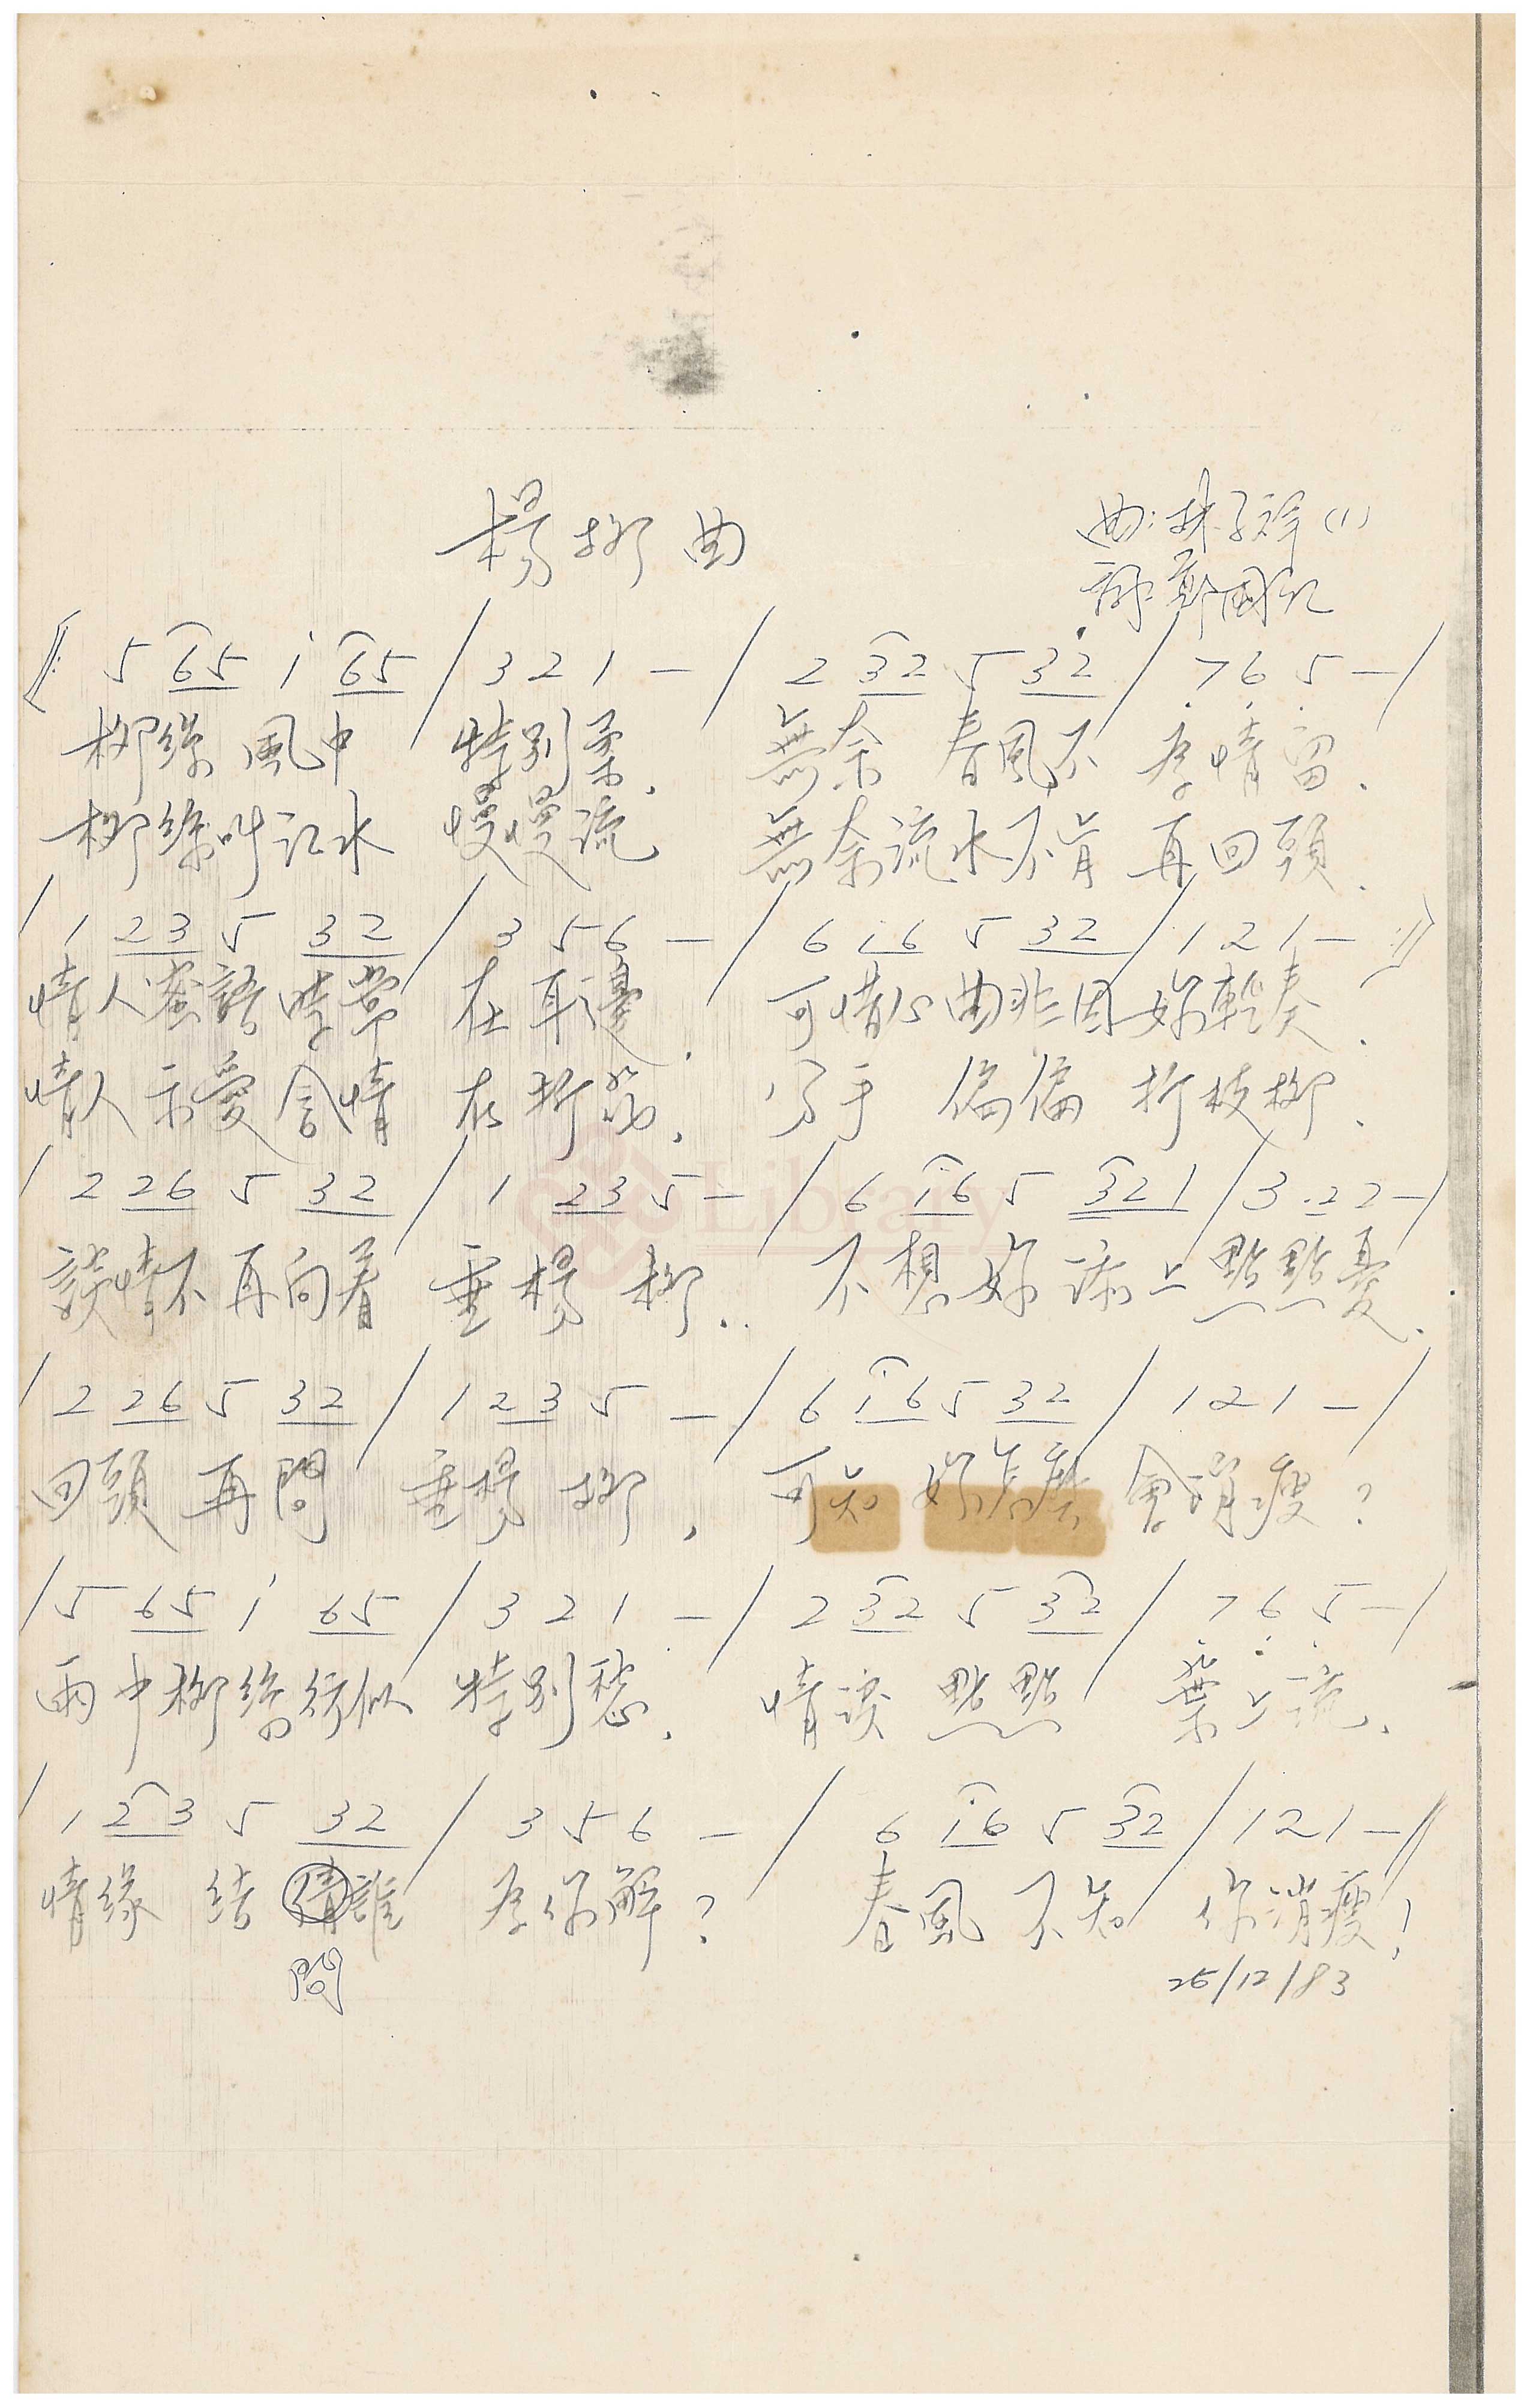 楊柳曲
曲：林子祥 (1)
詞：鄭國江
‖: 5 65 i 65 / 3 2 1 — / 2 32 5 32 / 7 6 5 — /
柳絲風中 特別柔. 無奈 春風不 為情留.
柳絲叫江水 慢慢流 無奈流水不肯 再回頭.
/ 1 23 5 32 / 3 5 6 — / 6 i6 5 32 / 1 2 1 — :‖
情人蜜語時常 在耳邊. 可惜心曲非因妳輕奏.
情人示愛含情 在折 偏偏 折枝柳.
/ 2 26 5 32 / 1 23 5 — / 6 i6 5 321 / 3 . 2 2 — /
談情不再向着 垂楊 柳. 不想妳添上點點憂.
/ 2 26 5 32 / 1 23 5 — / 6 i6 5 32 / 1 2 1 — /
回頭 再問 垂楊 柳, 可知 妳怎麼 會消瘦?
/ 5 65 i 65 / 3 2 1 — / 2 32 5 32 / 7 6 5 — /
雨中柳絲彷似 特別愁. 情淚 點點 葉上流.
/ 1 23 5 32 / 3 5 6 — / 6 i6 5 32 / 1 2 1 — ‖
情緣 結 請誰 為你解? 春風 不知 你消瘦!
問
26/12/83
Library